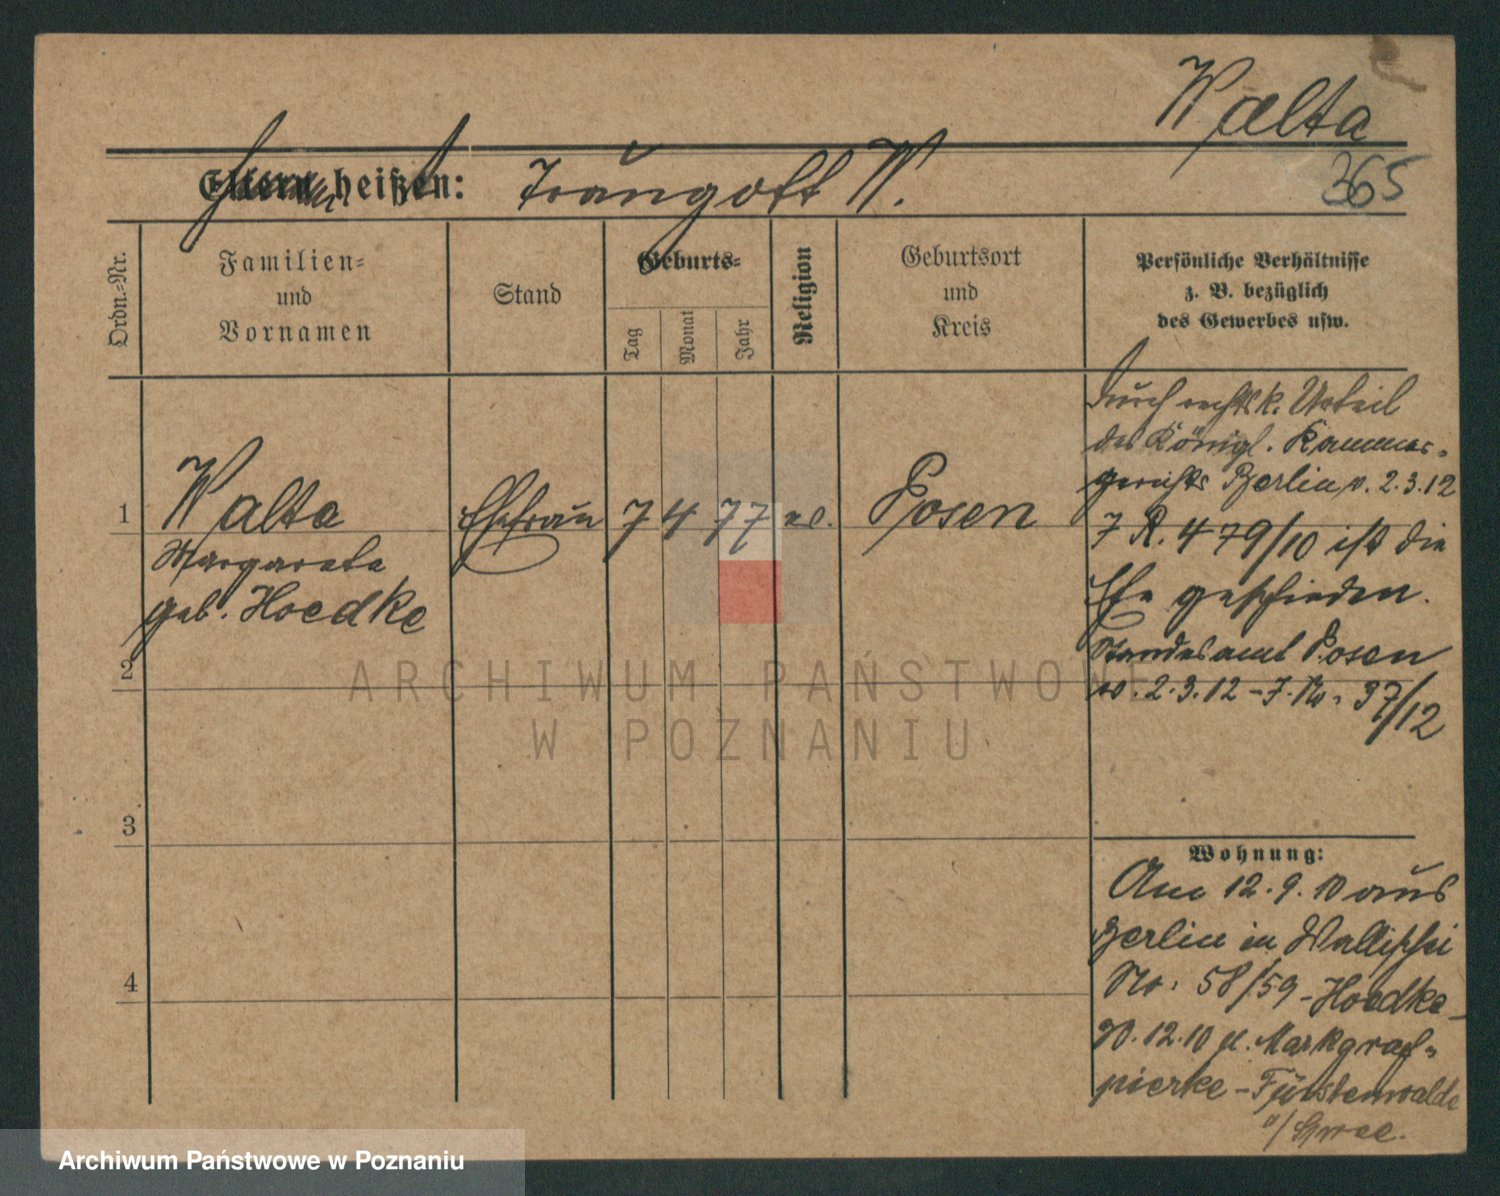 Walta
365
Eltern heißen: Traugott W.
Ordn.-Nr.
Familien-
und
Vornamen
Stand
Geburts-
Tag
Monat
Jahr
Religion
Geburtsort
und
Kreis
Persönliche Verhältnisse
z. B. bezüglich
des Gewerbes usw.
Durch rechtsk. Urteil
des Königl. Kammer-
gerichts Berlin v. 2.3.12
7 R. 479/10 ist die
Ehe geschieden.
Standesamt Posen
v. 2.3.12 - J. No. 37/12
1 Walta Ehefrau 7 4 77 ev. Posen
Margarete
geb. Hoedke
2
3
4
Wohnung:
Am 12.9.10 aus
Berlin in Wallischei
No. 58/59 - Hoedke -
30.12.10 n. Markgraf-
pierke - Fürstenwalde
a/ Spree.
ARCHIWUM PAŃSTWOWE
W POZNANIU
Archiwum Państwowe w Poznaniu